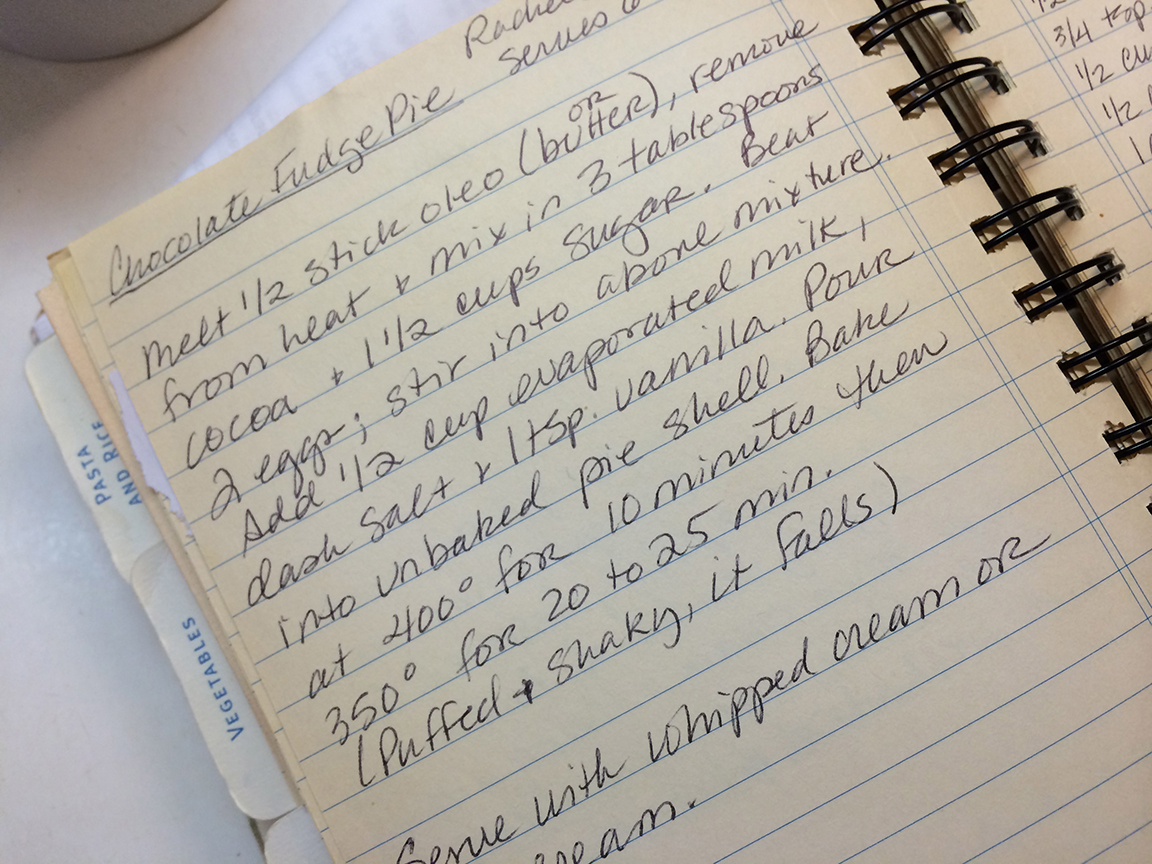 serves
Chocolate Fudge Pie
melt 1/2 stick oleo (or butter), remove
from heat + mix in 3 tablespoons
cocoa + 1 1/2 cups sugar. Beat
2 eggs; stir into above mixture.
Add 1/2 cup evaporated milk,
dash salt + 1 tsp. vanilla. Pour
into unbaked pie shell. Bake
at 400° for 10 minutes then
350° for 20 to 25 min.
(Puffed + shaky, it falls)
Serve with whipped cream or
PASTA
AND RICE
VEGETABLES
3/4 tsp
1/2
1/2